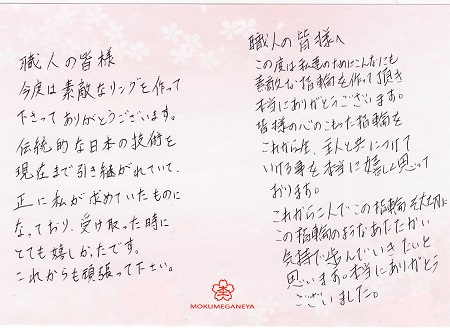 職人の皆様
今度は素敵なリングを作って
下さってありがとうございます。
伝統的な日本の技術を
現在まで引き継がれていて、
正に私が求めていたものに
なっており、受け取った時に
とても嬉しかったです。
これからも頑張って下さい。
職人の皆様へ
この度は私達のためにこんなにも
素敵な指輪を作って頂き
本当にありがとうございます。
皆様の心のこもった指輪を
これから先、主人と共につけて
いける事を本当に嬉しく思って
おります。
これから二人でこの指輪を大切に
この指輪のようなあたたかい
気持で歩んでいきたいと
思います。本当にありがとう
ございました。
MOKUMEGANEYA